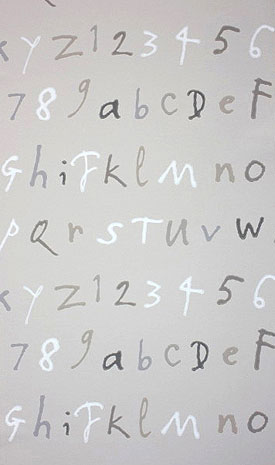 x y z 1 2 3 4 5 6
7 8 9 a b c D e F
G h i J k l M n o
p Q r s T u v w
x y z 1 2 3 4 5 6
7 8 9 a b c D e F
G h i J k l M n o